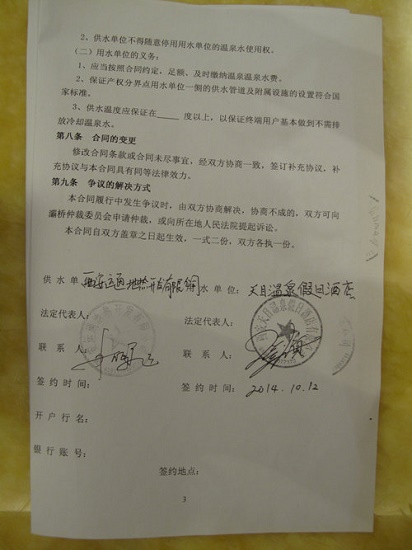 2、供水单位不得随意停用用水单位的温泉水使用权。
（二）用水单位的义务：
1、应当按照合同约定，足额、及时缴纳温泉温泉水费。
2、保证产权分界点用水单位一侧的供水管道及附属设施的设置符合国
家标准。
3、供水温度应保证在______度以上，以保证终端用户基本做到不需排
放冷却温泉水。
第八条 合同的变更
修改合同条款或合同未尽事宜，经双方协商一致，签订补充协议，补
充协议与本合同具有同等法律效力。
第九条 争议的解决方式
本合同履行中发生争议时，由双方协商解决，协商不成的，双方可向
灞桥仲裁委员会申请仲裁，或向所在地人民法院提起诉讼。
本合同自双方盖章之日起生效，一式二份，双方各执一份。
供 水 单 用 水 单 位： 天目温泉假日酒店
法定代表人： 法定代表人：
联 系 人： 联 系 人：
签 约 时 间： 签 约 时 间： 2014.10.12
开 户 行 名：
银 行 账 号：
签约地点：
3